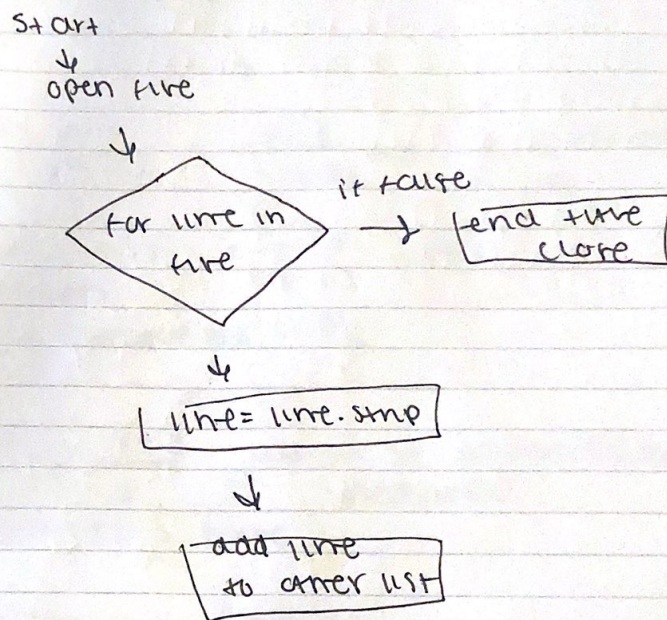 start
open file
for line in
file
if false
end file
close
line = line.strip
add line
to other list